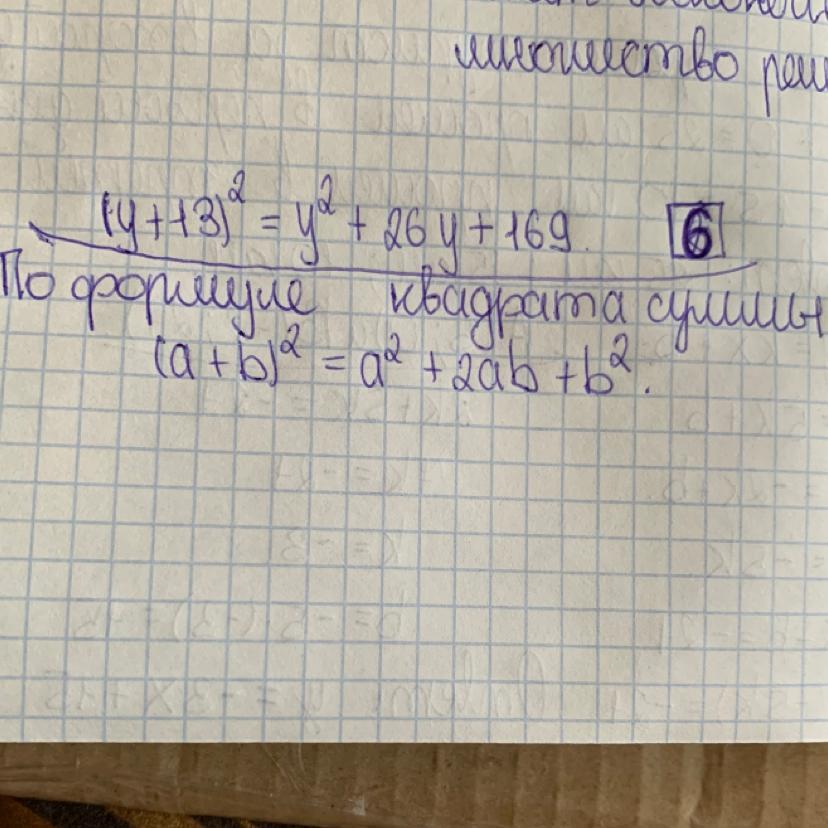 множество
(y+13)² = y² + 26y + 169. 6
По формуле квадрата суммы
(a+b)² = a² + 2ab + b².